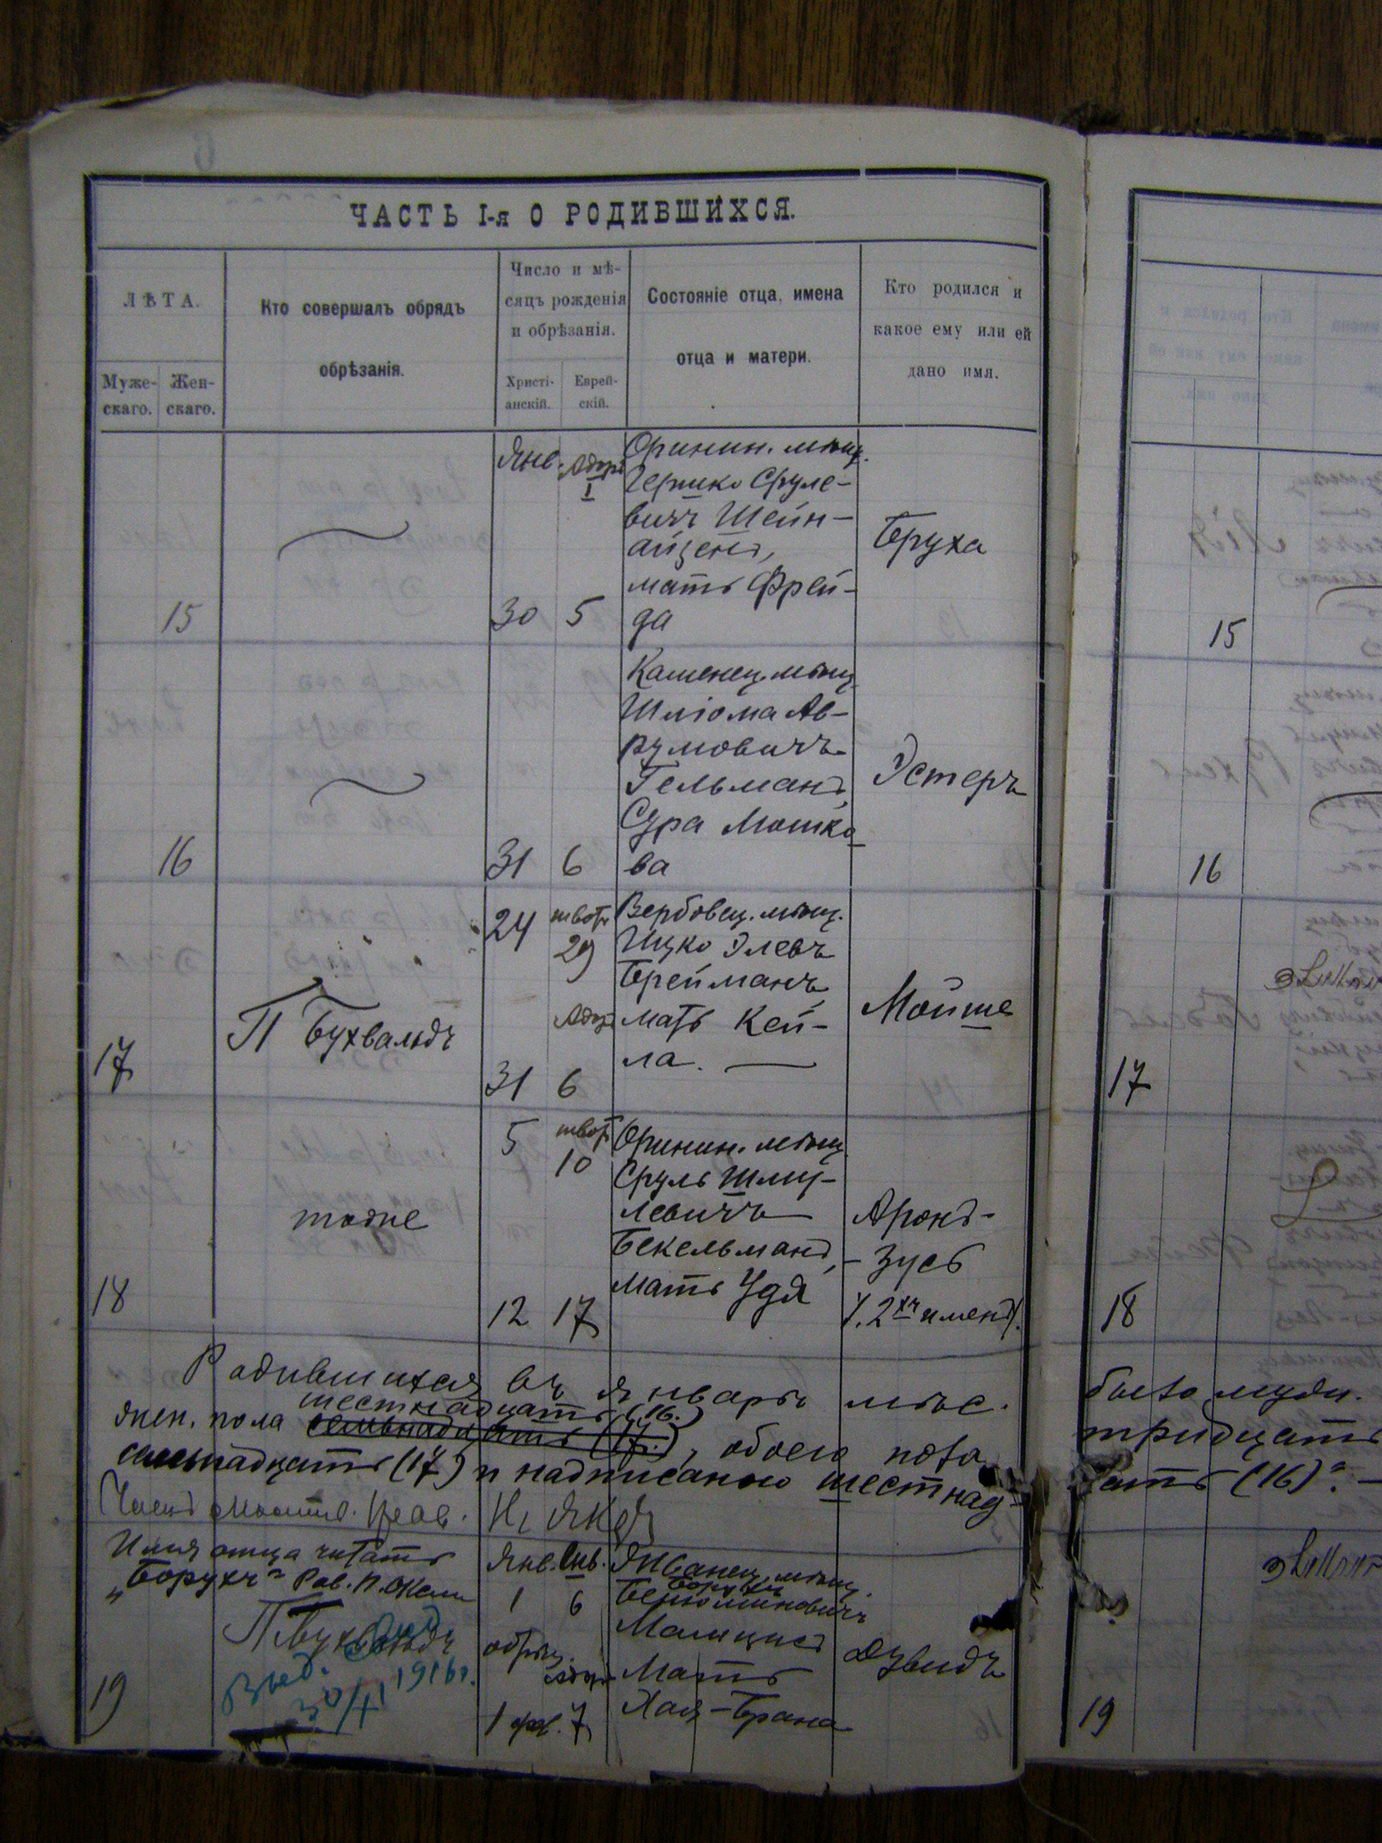 ЧАСТЬ I-я О РОДИВШИХСЯ.
ЛѢТА.
Муже-
скаго.
Жен-
скаго.
Кто совершалъ обрядъ
обрѣзанія.
Число и мѣ-
сяцъ рожденія
и обрѣзанія.
Христі-
анскій.
Еврей-
скій.
Состояніе отца, имена
отца и матери.
Кто родился и
какое ему или ей
дано имя.
15
Янв. Адаръ
I
30 5
Оринин. мѣщ.
Гершко Сруле-
вичъ Шейн-
айзенъ,
мать Фрей-
да
Бруха
15
16
31 6
Каменец. мѣщ
Шліома Ав-
румовичъ
Гельманъ,
Сура Мошко-
ва
Эстеръ
16
17
П Бухвальдъ
24 шватъ
29
Адар
31 6
Вербовец. мѣщ.
Ицко Элевъ
Брейманъ,
мать Кей-
ла.
Мойше
17
18
тоже
5 шват
10
12 17
Оринин. мѣщ
Сруль Шму-
левичъ
Бекельманъ,
мать Удя
Аронъ-
-Зусь
/. 2хъ именъ/.
18
Родившихся въ январѣ мѣс. было мужи.
шестнадцать (16.)
жен. пола семьнадцать (17.), обоего пола тридцать
семьнадцать (17) и надписаною шестнад-
цать (16)".
Имя отца читать
"Борухъ" Рав. П.
19
П Бухвальдъ
Выд.
30/VI 1916г.
Янв. Шв.
1 6
обрѣз.
Адар
1 фев. 7
Жванец. мѣщ.
Борухъ
Беньоминовичъ
Мать
Хая-Брана
Дувидъ
19